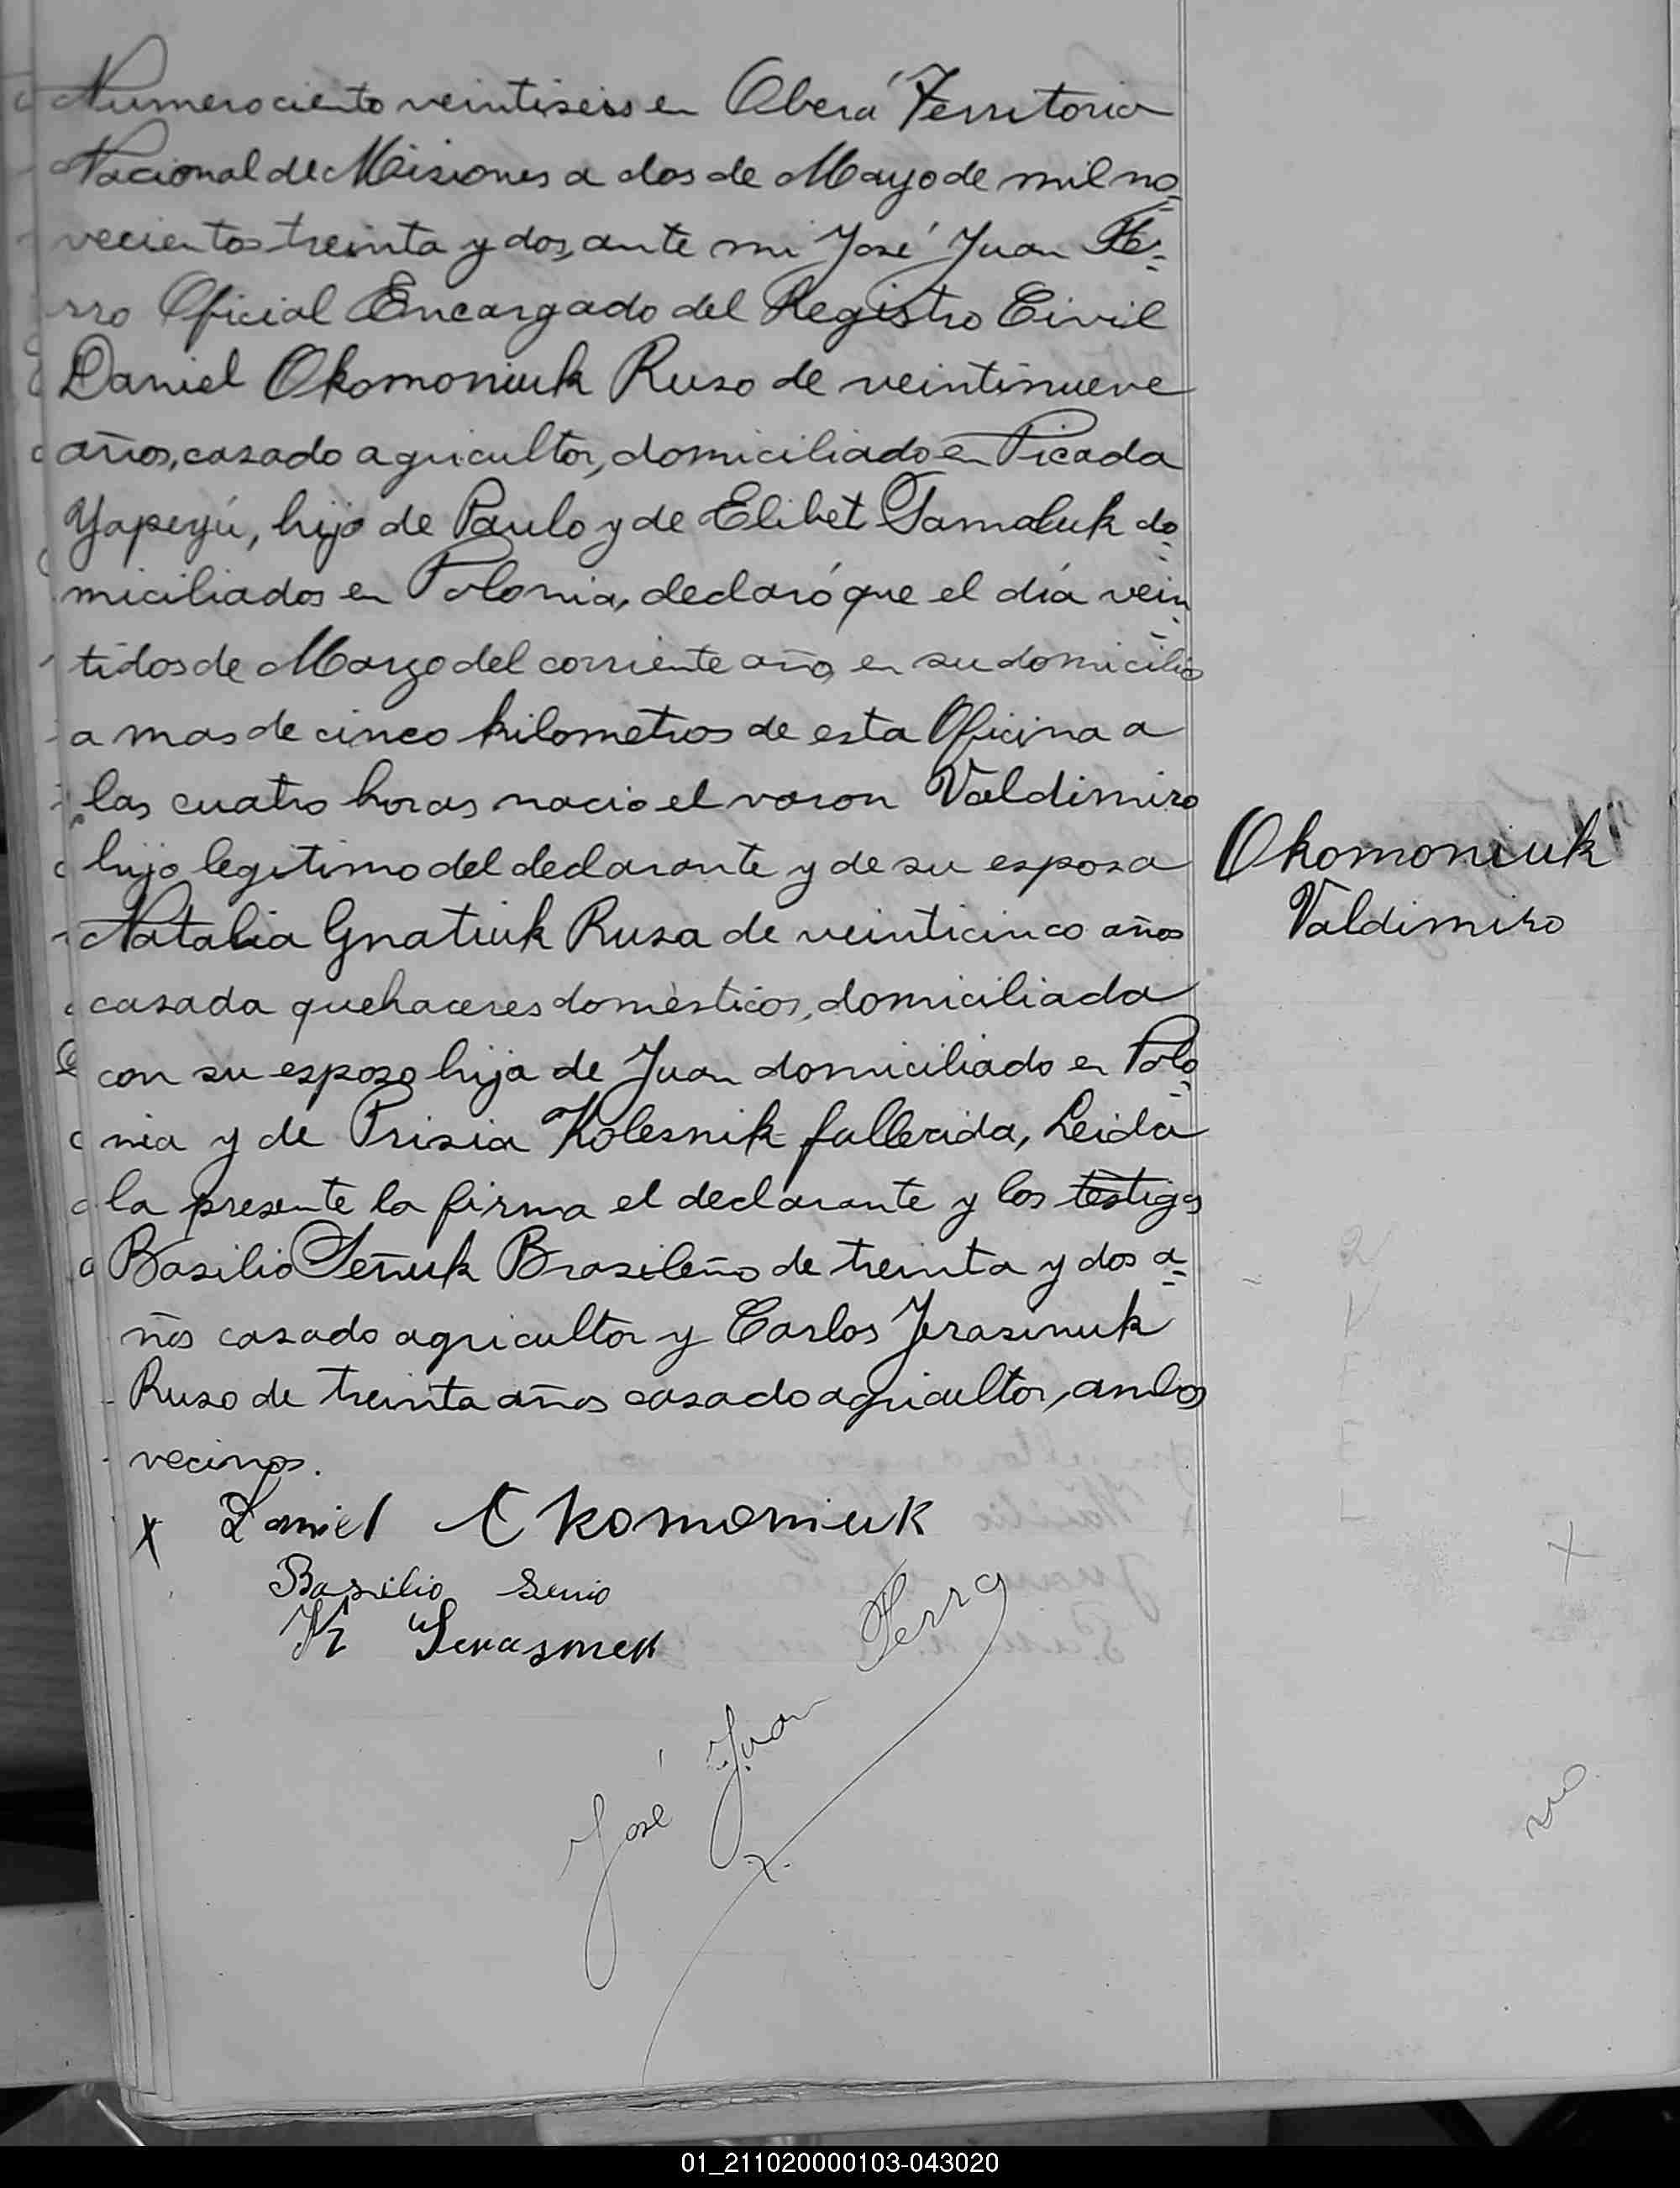 Numero ciento veintiseis en Oberá Territorio
Nacional de Misiones a dos de Mayo de mil no=
vecientos treinta y dos, ante mi José Juan Fe=
rro Oficial Encargado del Registro Civil
Daniel Okomoniuk Ruso de veintinueve
años, casado agricultor, domiciliado en Picada
Yapeyú, hijo de Paulo y de Elibet Samaluk do=
miciliados en Polonia, declaró que el día vein=
tidos de Marzo del corriente año, en su domicilio
a mas de cinco kilometros de esta Oficina a
las cuatro horas nacio el varon Valdimiro
hijo legitimo del declarante y de su esposa
Okomoniuk
Valdimiro
Natalia Gnatiuk Rusa de veinticinco años
casada quehaceres domèsticos, domiciliada
con su esposo hija de Juan domiciliado en Polo=
nia y de Prisia Kolesnik fallecida, Leida
la presente la firma el declarante y los testigos
Basilio Señuk Brasileño de treinta y dos a=
ños casado agricultor y Carlos Jerasinuk
Ruso de treinta años casado agricultor, ambos
vecinos.
x Daniel Okomoniuk
Basilio
José Juan Ferro
2
V
F
E
L
x
01_211020000103-043020